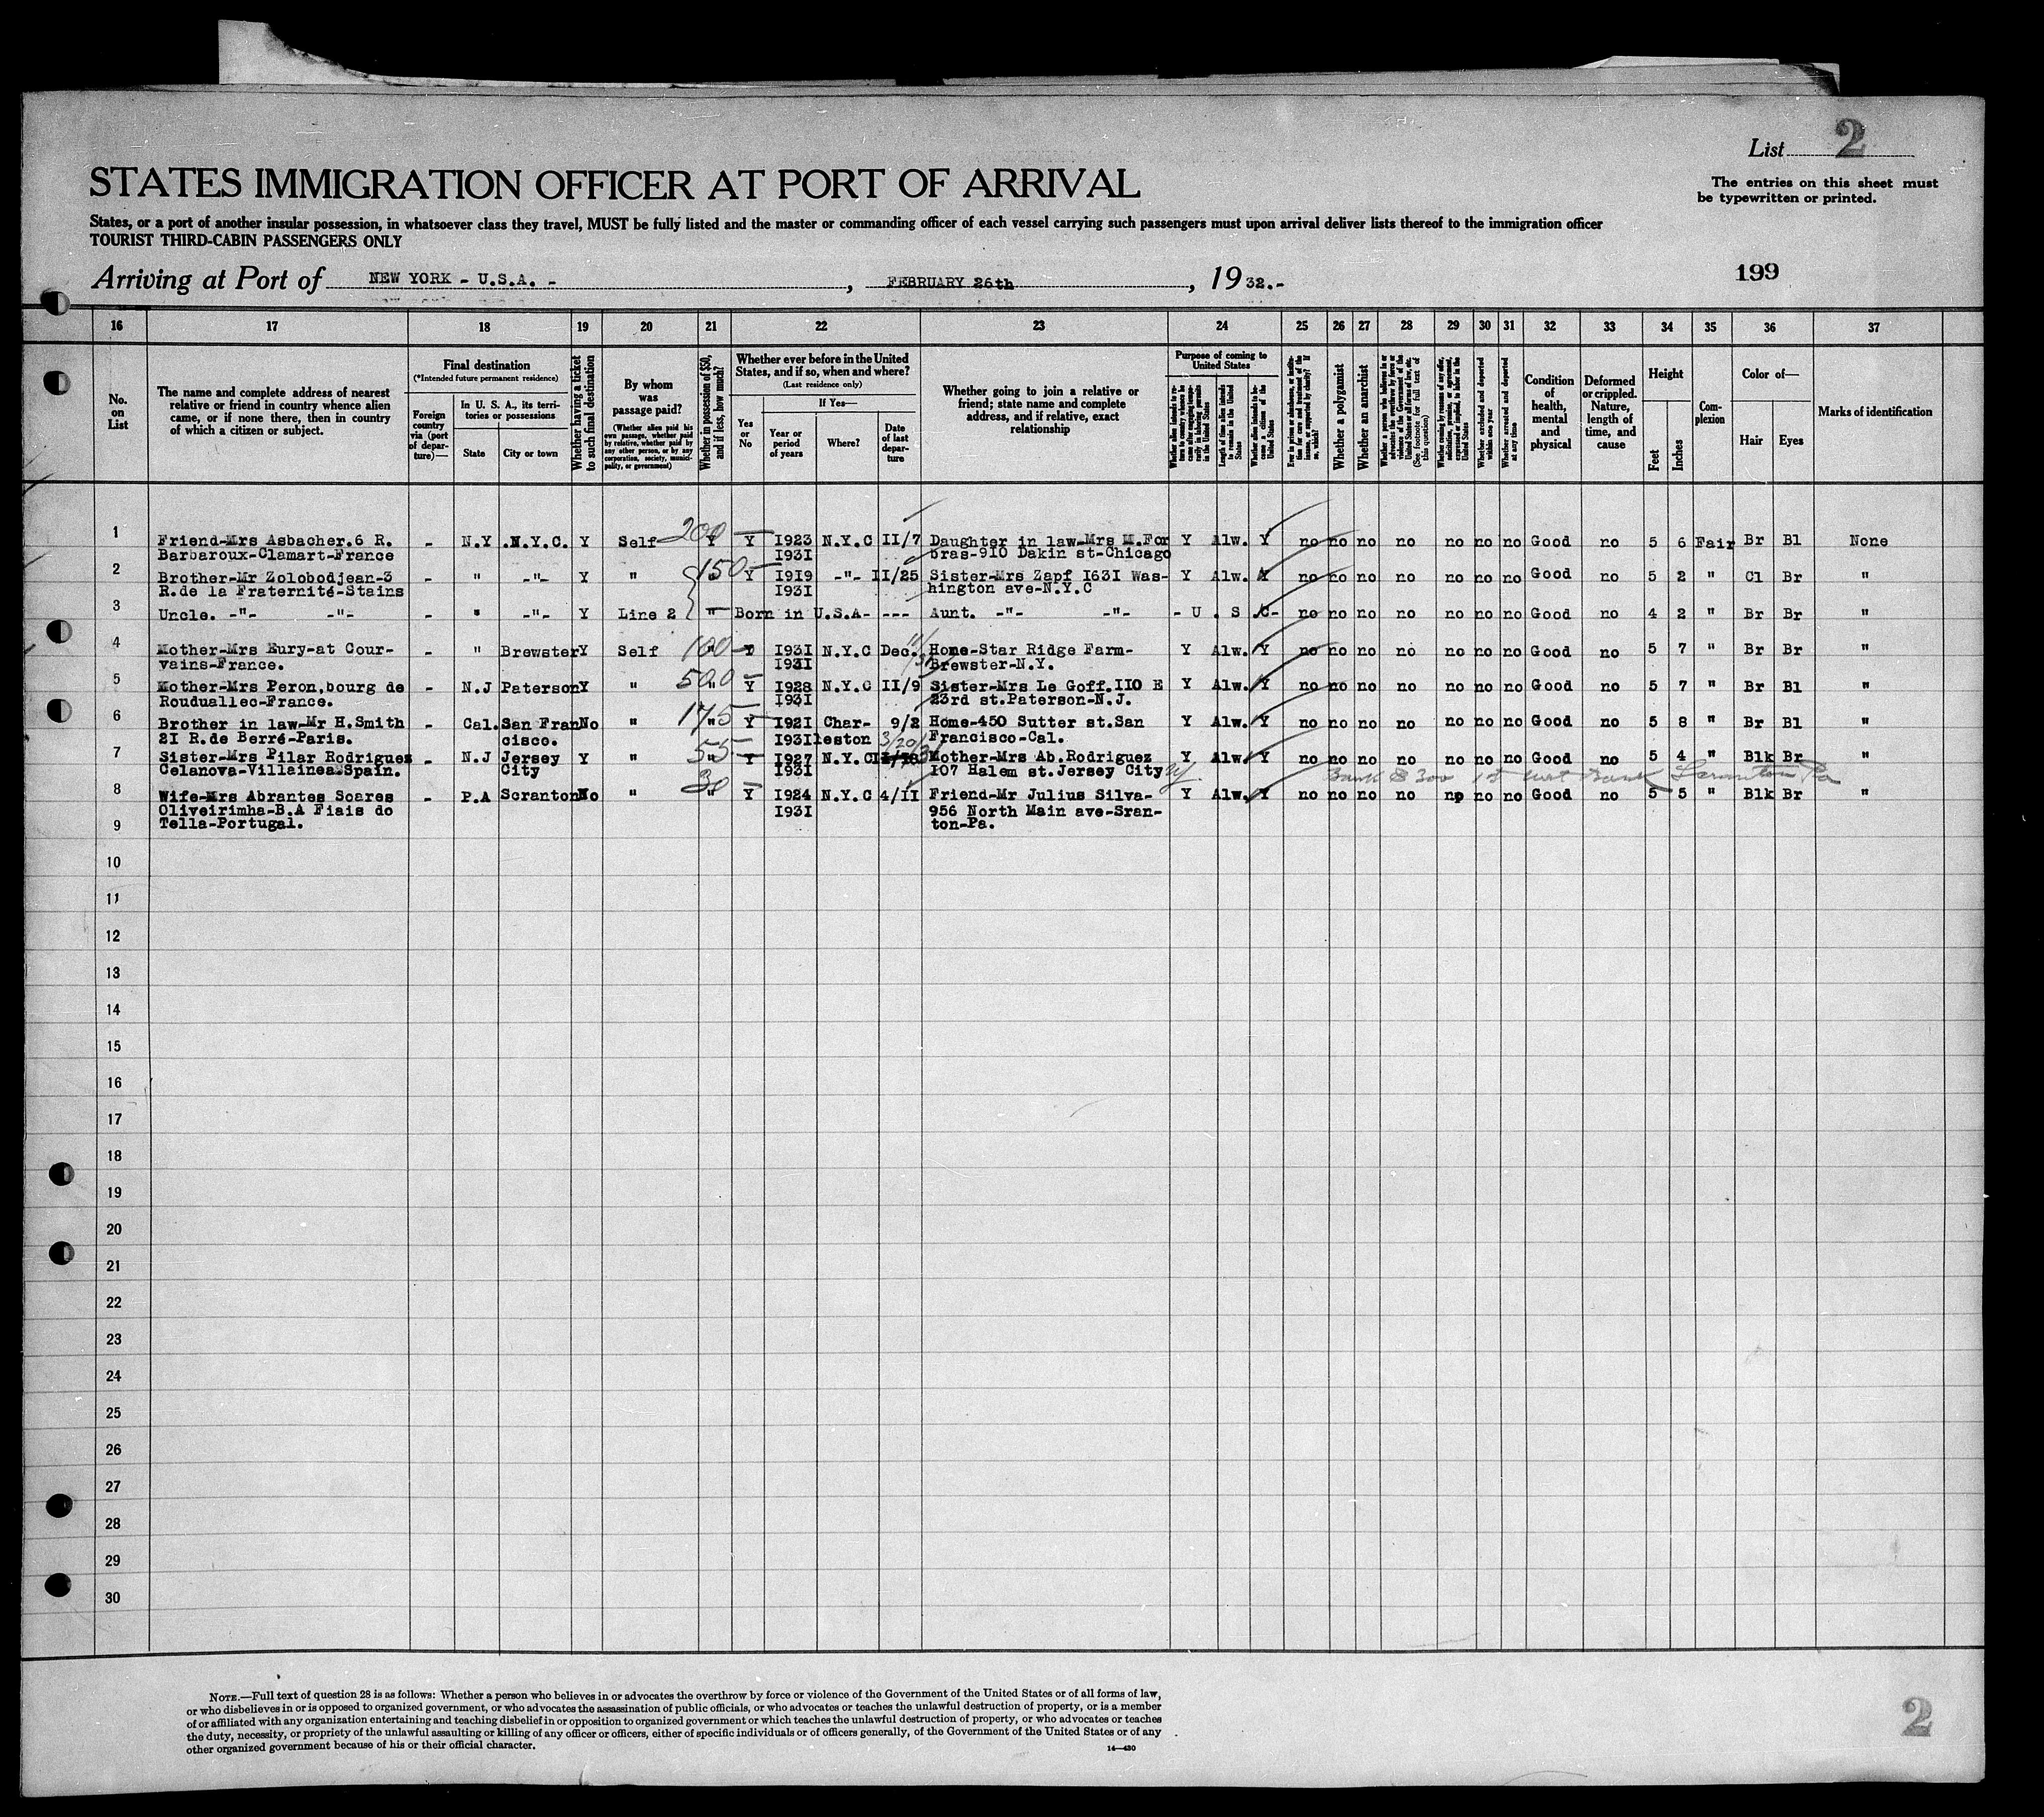 List 2
STATES IMMIGRATION OFFICER AT PORT OF ARRIVAL
The entries on this sheet must
be typewritten or printed.
States, or a port of another insular possession, in whatsoever class they travel, MUST be fully listed and the master or commanding officer of each vessel carrying such passengers must upon arrival deliver lists thereof to the immigration officer
TOURIST THIRD-CABIN PASSENGERS ONLY
Arriving at Port of NEW YORK - U.S.A. - , FEBRUARY 26th , 19 32.-
199
16 17 18 19 20 21 22 23 24 25 26 27 28 29 30 31 32 33 34 35 36 37
No. on List
The name and complete address of nearest relative or friend in country whence alien came, or if none there, then in country of which a citizen or subject.
Final destination
(*Intended future permanent residence)
Foreign country via (port of departure)—
In U. S. A., its territories or possessions
State City or town
Whether having a ticket to such final destination
By whom was passage paid?
(Whether alien paid his own passage, whether paid by relative, whether paid by any other person, or by any corporation, society, municipality, or government)
Whether in possession of $50, and if less, how much?
Whether ever before in the United States, and if so, when and where?
(Last residence only)
Yes or No
If Yes—
Year or period of years
Where?
Date of last departure
Whether going to join a relative or friend; state name and complete address, and if relative, exact relationship
Purpose of coming to United States
Whether alien intends to return to country whence he came after engaging temporarily in laboring pursuits in the United States
Length of time alien intends to remain in the United States
Whether alien intends to become a citizen of the United States
Ever in prison or almshouse, or institution for care and treatment of the insane, or supported by charity? If so, which?
Whether a polygamist
Whether an anarchist
Whether a person who believes in or advocates the overthrow by force or violence of the Government of the United States or all forms of law, etc. (See footnote for full text of this question)
Whether coming by reason of any offer, solicitation, promise, or agreement, expressed or implied, to labor in the United States
Whether excluded and deported within one year
Whether arrested and deported at any time
Condition of health, mental and physical
Deformed or crippled. Nature, length of time, and cause
Height
Feet Inches
Complexion
Color of—
Hair Eyes
Marks of identification
1 Friend-Mrs Asbacher.6 R. - N.Y .N.Y.C. Y Self 200 Y Y I923 N.Y.C II/7 Daughter in law-Mrs M.For Y Alw. Y no no no no no no no Good no 5 6 Fair Br Bl None
Barbaroux-Clamart-France I931 bras-9I0 Dakin st-Chicago
2 Brother-Mr Zolobodjean-3 - " -"- Y " 150 " Y I9I9 -"- II/25 Sister-Mrs Zapf I63I Was- Y Alw. Y no no no no no no no Good no 5 2 " Cl Br "
R.de la Fraternité-Stains I93I hington ave-N.Y.C
3 Uncle. -"- -"- - " -"- Y Line 2 " Born in U.S.A- --- Aunt. -"- -"- - U . S .C- no no no no no no no Good no 4 2 " Br Br "
4 Mother-Mrs Eury-at Cour- - " Brewster Y Self 100 " Y I93I N.Y.C Dec. Home-Star Ridge Farm- Y Alw. Y no no no no no no no Good no 5 7 " Br Br "
vains-France. I93I Brewster-N.Y.
5 Mother-Mrs Peron,bourg de - N.J Paterson Y " 500 " Y I928 N.Y.C II/9 Sister-Mrs Le Goff.II0 E Y Alw. Y no no no no no no no Good no 5 7 " Br Bl "
Roudualleo-France. I93I 23rd st.Paterson-N.J.
6 Brother in law-Mr H.Smith - Cal. San Fran No " 175 " Y I92I Char- 9/2 Home-450 Sutter st.San Y Alw. Y no no no no no no no Good no 5 8 " Br Bl "
2I R.de Berré-Paris. cisco. I93I leston Francisco-Cal.
7 Sister-Mrs Pilar Rodriguez - N.J Jersey Y " 55 " Y I927 N.Y.C 3/20/31 Mother-Mrs Ab.Rodriguez Y Alw. Y no no no no no no no Good no 5 4 " Blk Br "
Celanova-Villainea.Spain. City I93I I07 Halem st.Jersey City
Bank $300 1st Nat Bank Scranton Pa
8 Wife-Mrs Abrantes Soares - P.A Scranton No " 30 " Y I924 N.Y.C 4/II Friend-Mr Julius Silva- Y Alw. Y no no no no no no no Good no 5 5 " Blk Br "
Oliveirimha-B.A Fiais do I93I 956 North Main ave-Sran-
9 Tella-Portugal. ton-Pa.
10
11
12
13
14
15
16
17
18
19
20
21
22
23
24
25
26
27
28
29
30
NOTE.—Full text of question 28 is as follows: Whether a person who believes in or advocates the overthrow by force or violence of the Government of the United States or of all forms of law,
or who disbelieves in or is opposed to organized government, or who advocates the assassination of public officials, or who advocates or teaches the unlawful destruction of property, or is a member
of or affiliated with any organization entertaining and teaching disbelief in or opposition to organized government or which teaches the unlawful destruction of property, or who advocates or teaches
the duty, necessity, or propriety of the unlawful assaulting or killing of any officer or officers, either of specific individuals or of officers generally, of the Government of the United States or of any
other organized government because of his or their official character.
14—430
2